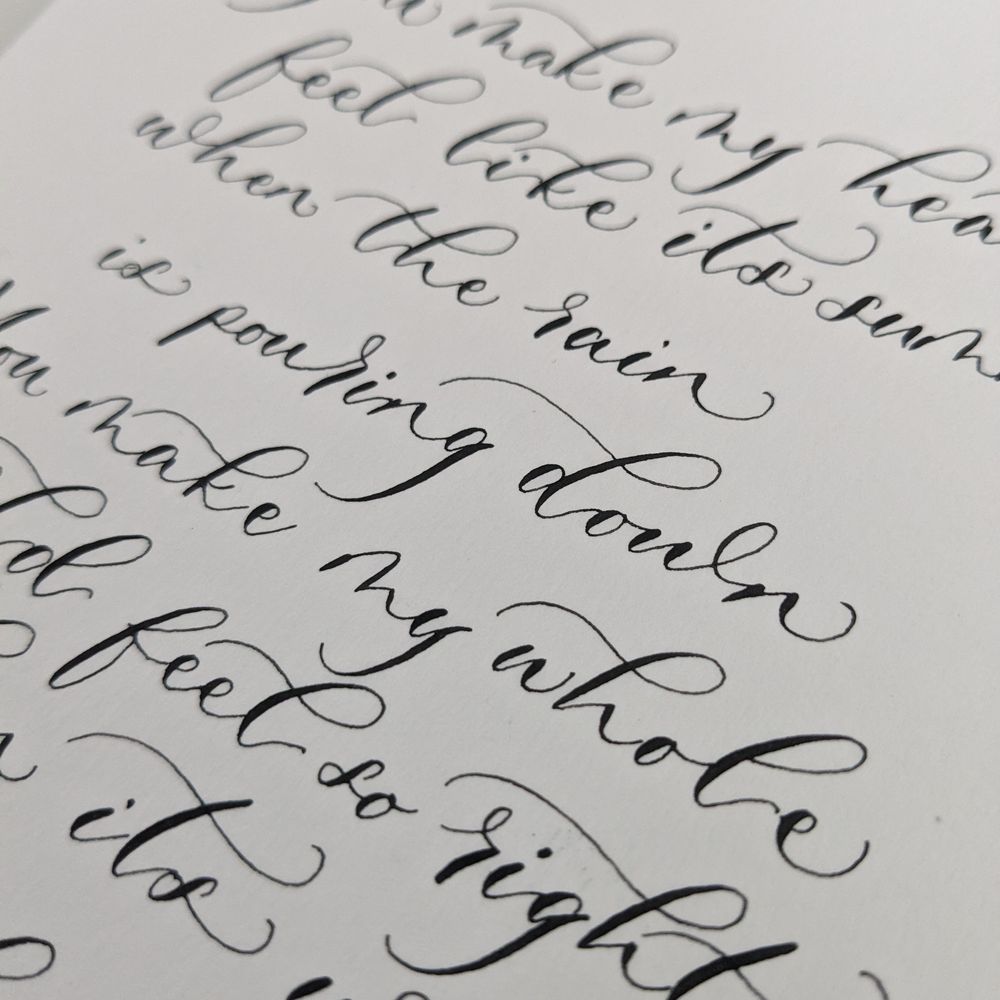 make my
feel like its
when the rain
is pouring down
You make my whole
feel so right
its